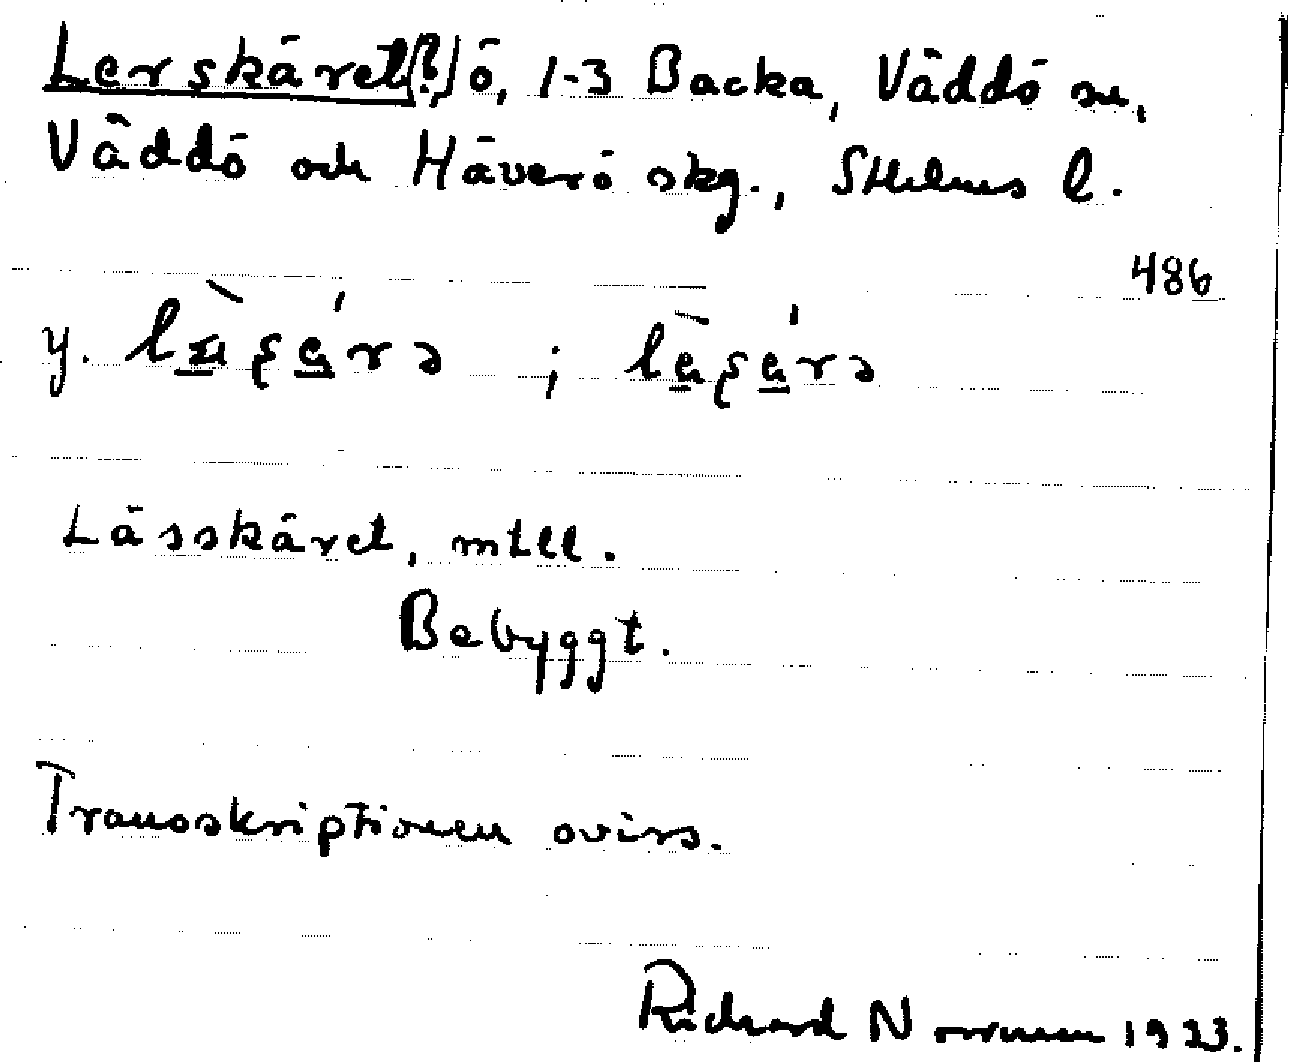 Lerskäret(?) ö, 1-3 Backa, Väddö sn,
Väddö och Häverö skg., Sthlms l.
486
y.
Lässkäret, mtll.
Bebyggt.
Transskriptionen oviss.
Richard Norrman 1933.